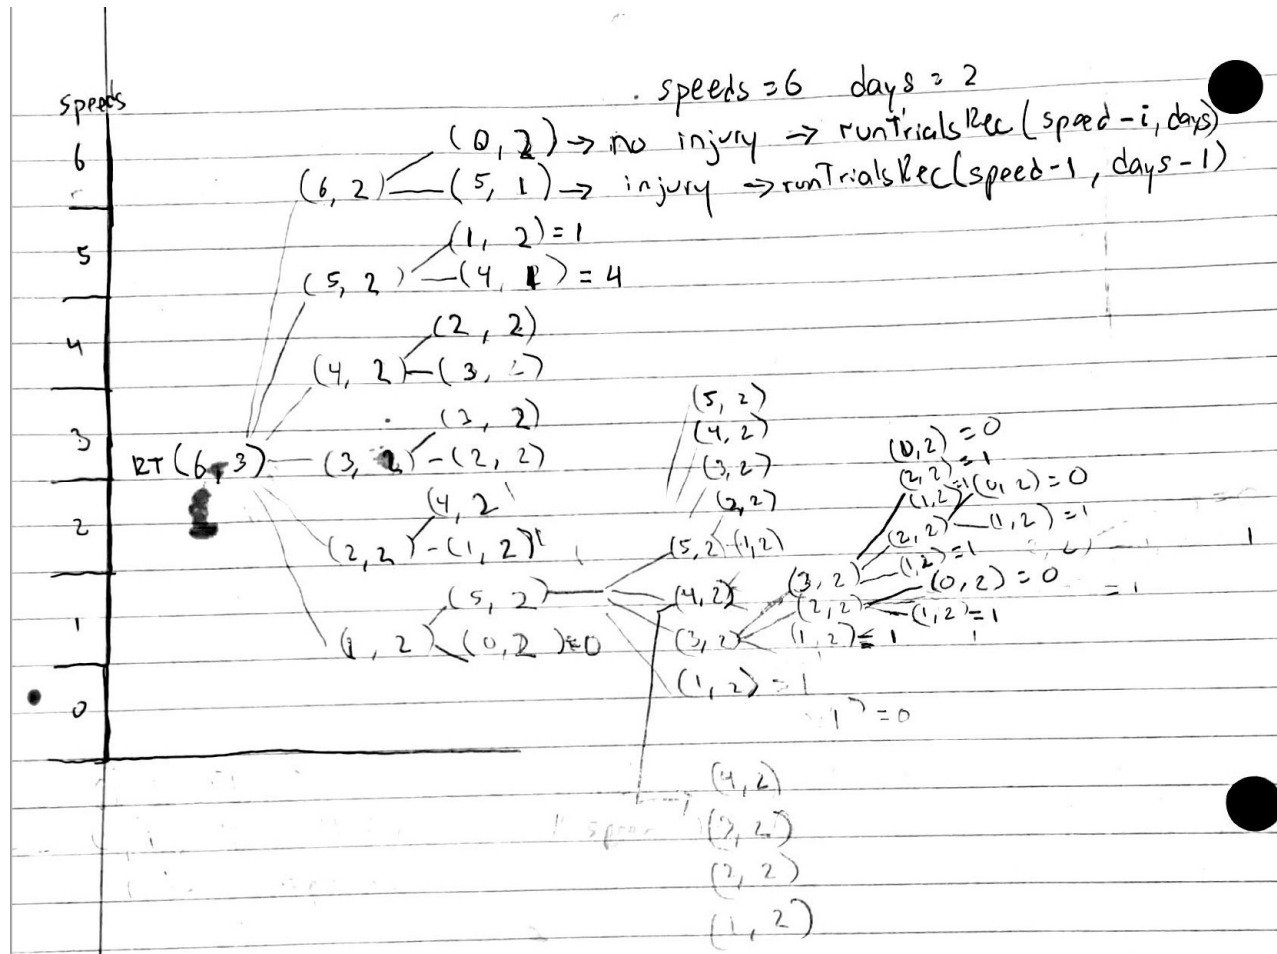 speeds = 6 days = 2
speeds
6
(0, 2) → no injury → runTrialsRec(speed-i, days)
(6, 2)
(5, 1) → injury → runTrialsRec(speed-1, days-1)
5
(1, 2) = 1
(5, 2)
(4, 1) = 4
4
(2, 2)
(4, 2)
(3,
3
(3, 2)
RT(6, 3)
(3, 2) - (2, 2)
2
(4, 2
(2, 2) - (1, 2)
1
(5, 2)
(1, 2)
(0, 2) = 0
0
(5, 2)
(4, 2)
(3, 2)
(2, 2)
(5, 2) - (1, 2)
(4, 2)
(3, 2)
(1, 2) = 1
1 ) = 0
(3, 2)
(2, 2)
(1, 2) = 1
(0, 2) = 0
(2, 2) = 1
(1, 2) = 1
(0, 2) = 0
(2, 2)
(1, 2) = 1
(1, 2) = 1
(0, 2) = 0
(1, 2) = 1
= 1
1
1
(4, 2)
(3, 2)
(2, 2)
(1, 2)